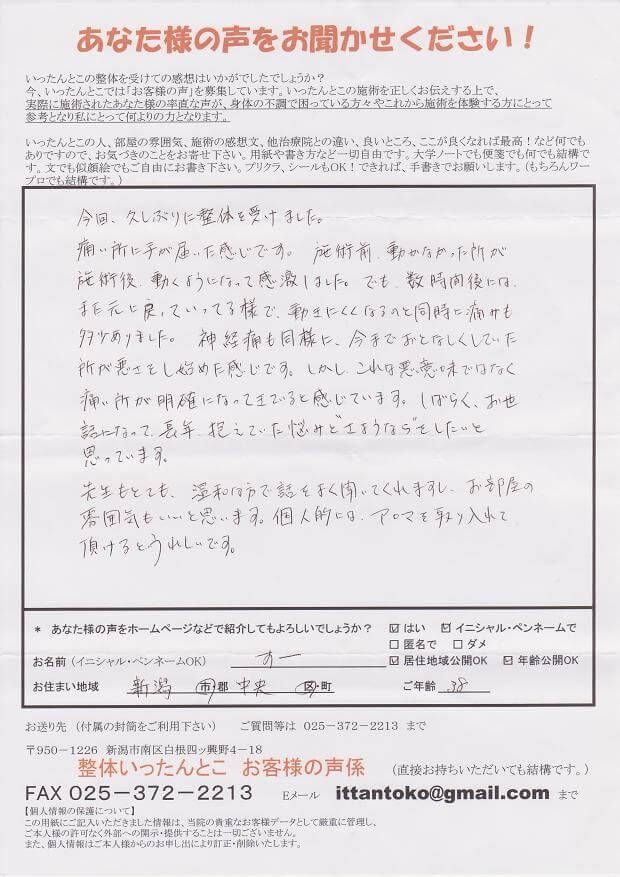 あなた様の声をお聞かせください！
いったんとこの整体を受けての感想はいかがでしたでしょうか？
今、いったんとこでは「お客様の声」を募集しています。いったんとこの施術を正しくお伝えする上で、
実際に施術されたあなた様の率直な声が、身体の不調で困っている方々やこれから施術を体験する方にとって
参考となり私にとって何よりの力となります。
いったんとこの人、部屋の雰囲気、施術の感想文、他治療院との違い、良いところ、ここが良くなれば最高！など何でも
ありですので、お気づきのことをお寄せ下さい。用紙や書き方など一切自由です。大学ノートでも便箋でも何でも結構で
す。文でも似顔絵でもご自由にお書き下さい。プリクラ、シールもOK！できれば、手書きでお願いします。（もちろんワー
プロでも結構です。）
今回、久しぶりに整体を受けました。
痛い所に手が届いた感じです。施術前、動かなかった所が
施術後、動くようになって感激しました。でも、数時間後には、
また元に戻っていってる様で、動きにくくなるのと同時に痛みも
多少ありました。神経痛も同様に、今までおとなしくしていた
所が悪さをし始めた感じです。しかし、これは悪い意味ではなく
痛い所が明確になってきていると感じています。しばらく、お世
話になって、長年、抱えていた悩みと"さようなら"をしたいと
思っています。
先生もとても、温和な方で話をよく聞いてくれますし、お部屋の
雰囲気もいいと思います。個人的には、アロマを取り入れて
頂けるとうれしいです。
* あなた様の声をホームページなどで紹介してもよろしいでしょうか？ ☑ はい ☑ イニシャル・ペンネームで
□ 匿名で □ ダメ
お名前（イニシャル・ペンネームOK） すー ☑ 居住地域公開OK ☑ 年齢公開OK
お住まい地域 新潟 市・郡 中央 区・町 ご年齢 38
お送り先 （付属の封筒をご利用下さい） ご質問等は 025－372－2213 まで
〒950－1226 新潟市南区白根四ッ興野4－18
整体いったんとこ お客様の声係 （直接お持ちいただいても結構です。）
FAX 025－372－2213 Eメール ittantoko@gmail.com まで
【個人情報の保護について】
この用紙にご記入いただきました情報は、当院の貴重なお客様データとして厳重に管理し、
ご本人様の許可なく外部への開示・提供することは一切ございません。
また、個人情報はご本人様からのお申し出により訂正・削除いたします。